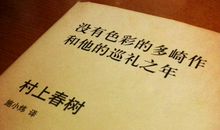 没有色彩的多崎作
和他的巡礼之年
村上春树
施小炜 译